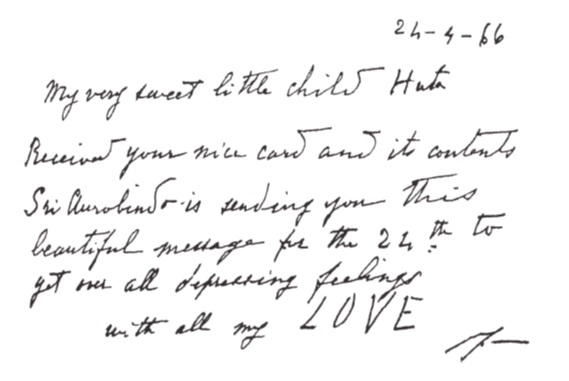 24-4-66
My very sweet little child Huta
Received your nice card and its contents
Sri Aurobindo is sending you this
beautiful message for the 24th to
get over all depressing feelings
with all my LOVE